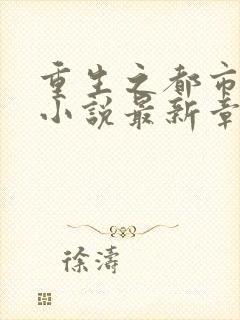 重生之都市
小说最新章
徐涛